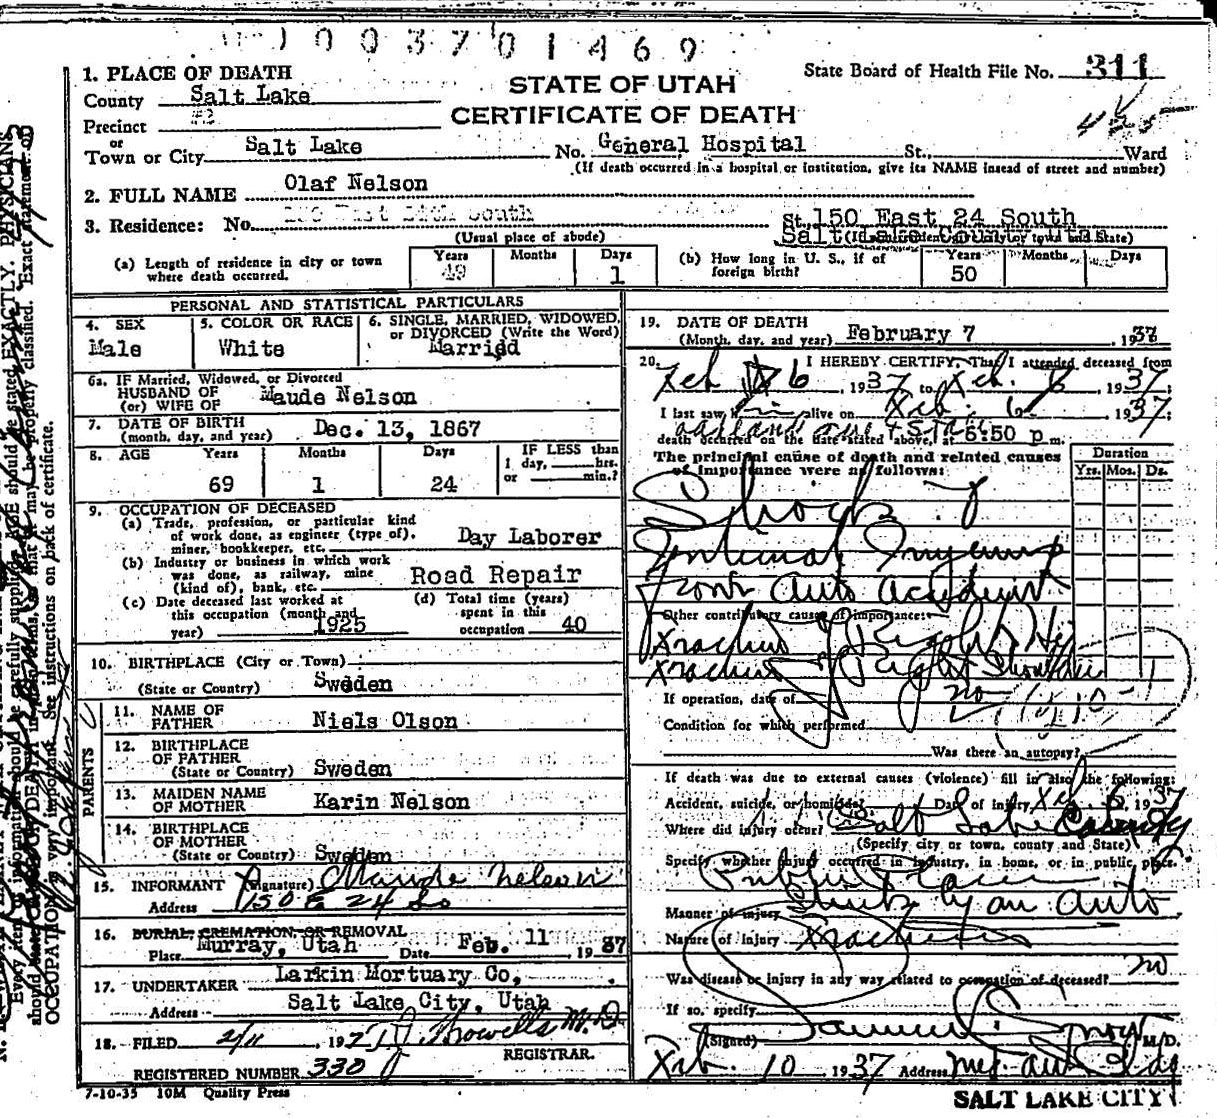 1003701469
1. PLACE OF DEATH
STATE OF UTAH
CERTIFICATE OF DEATH
State Board of Health File No. 311
County Salt Lake
Precinct #2
or
Town or City Salt Lake No. General Hospital St., Ward
(If death occurred in a hospital or institution, give its NAME insead of street and number)
2. FULL NAME Olaf Nelson
3. Residence: No. St. 150 East 24 South
Salt Lake County, Utah
(Usual place of abode)
(a) Length of residence in city or town where death occurred. Years 49 Months Days 1
(b) How long in U. S., if of foreign birth? Years 50 Months Days
PERSONAL AND STATISTICAL PARTICULARS
4. SEX Male
5. COLOR OR RACE White
6. SINGLE, MARRIED, WIDOWED, or DIVORCED (Write the Word) Married
6a. IF Married, Widowed, or Divorced
HUSBAND OF
(or) WIFE OF Maude Nelson
7. DATE OF BIRTH
(month, day, and year) Dec. 13, 1867
8. AGE Years 69 Months 1 Days 24
IF LESS than 1 day, hrs. or min.?
9. OCCUPATION OF DECEASED
(a) Trade, profession, or particular kind of work done, as engineer (type of), miner, bookkeeper, etc. Day Laborer
(b) Industry or business in which work was done, as railway, mine (kind of), bank, etc. Road Repair
(c) Date deceased last worked at this occupation (month and year) 1925
(d) Total time (years) spent in this occupation 40
10. BIRTHPLACE (City or Town)
(State or Country) Sweden
PARENTS
11. NAME OF FATHER Niels Olson
12. BIRTHPLACE OF FATHER
(State or Country) Sweden
13. MAIDEN NAME OF MOTHER Karin Nelson
14. BIRTHPLACE OF MOTHER
(State or Country) Sweden
15. INFORMANT (Signature) Maude Nelson
Address 150 E 24 So
16. BURIAL, CREMATION, OR REMOVAL
Place Murray, Utah Date Feb. 11 1937
17. UNDERTAKER Larkin Mortuary Co,
Address Salt Lake City, Utah
18. FILED 2/11, 1937 M.D.
REGISTRAR.
REGISTERED NUMBER 330
7-10-35 10M Quality Press
19. DATE OF DEATH
(Month, day, and year) February 7, 1937
20. I HEREBY CERTIFY, That I attended deceased from
Feb 6, 1937 to Feb. 1937
I last saw him alive on Feb. 6, 1937
death occurred on the date stated above, at 6:50 p m.
The principal cause of death and related causes of importance were as follows:
Duration
Yrs. Mos. Ds.
Shock
Internal Injuries
from Auto Accident
Other contributory causes of importance:
Fracture of Right Hip
Fracture of Right Shoulder
If operation, date of no
Condition for which performed
Was there an autopsy?
If death was due to external causes (violence) fill in also the following:
Accident, suicide, or homicide? Date of injury Feb 6 1937
Where did injury occur? Salt Lake County
(Specify city or town, county and State)
Specify whether injury occurred in industry, in home, or in public place.
Public Place
Manner of injury Struck by an auto
Nature of Injury Fractures
Was disease or injury in any way related to occupation of deceased? no
If so, specify
(Signed) M/D.
Feb. 10 1937 Address Med. Arts Bldg
SALT LAKE CITY